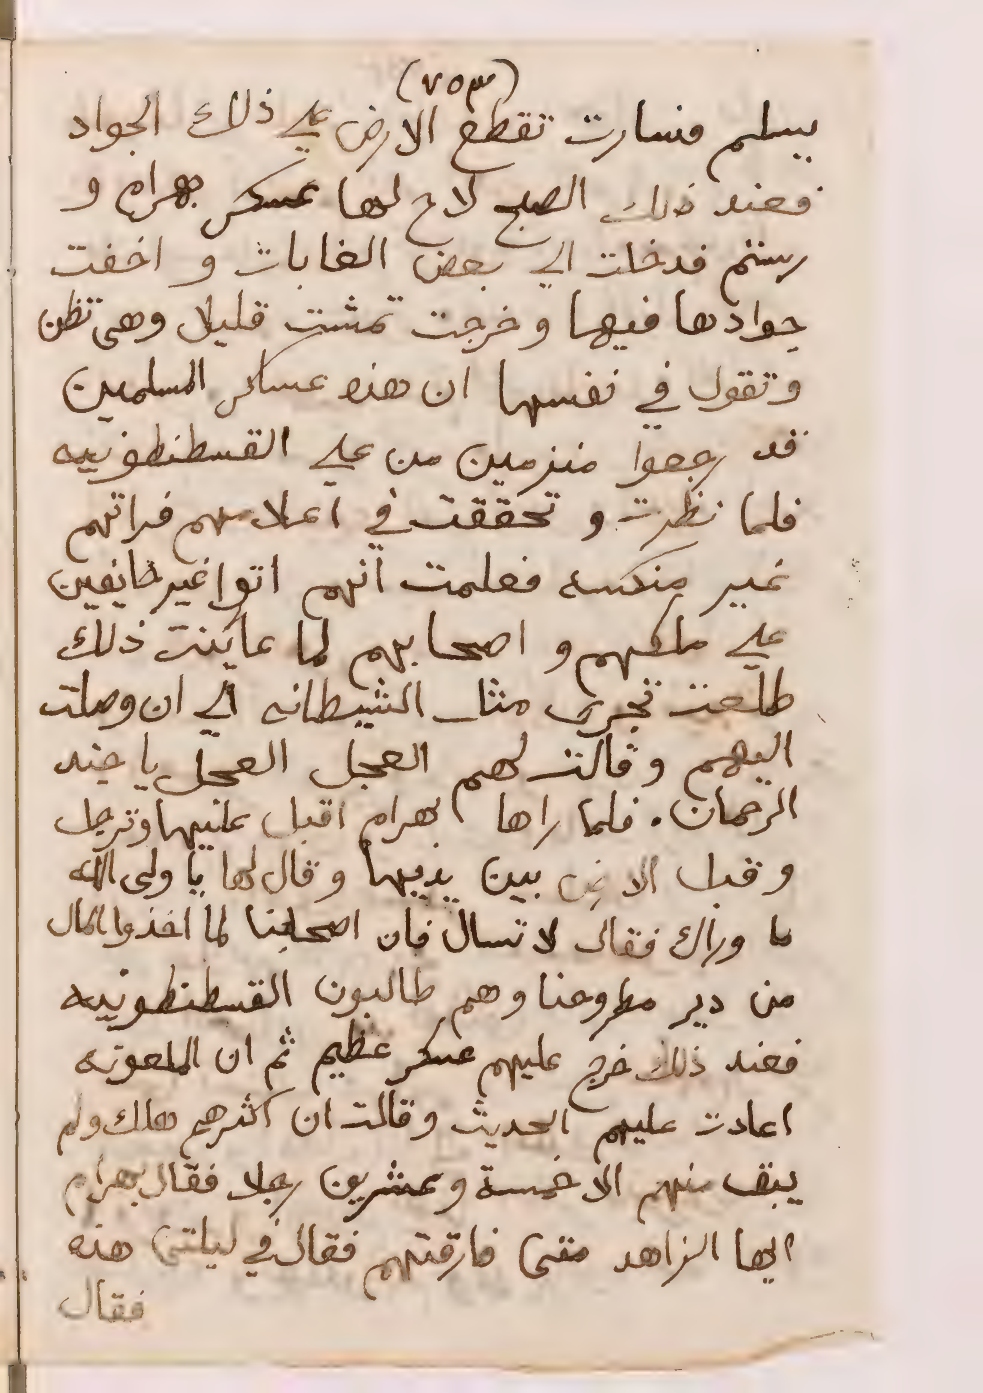 (٧٥٣)
بيسلم فسارت تقطع الارض علي ذلك الجواد
فعند ذلك الصبح لاح لها عسكر بهرام و
رستم فدخلت الي بعض الغابات و اخفت
جوادها فيها وخرجت تمشت قليلا وهي تظن
وتقول في نفسها ان هذه عساكر المسلمين
قد رجعوا منزمين من علي القسطنطونيه
فلما نظرت و تحققت في اعلامهم فراتهم
غير منكسه فعلمت انهم اتوا غير خايفين
علي ملكهم و اصحابهم لما عاينت ذلك
طلعت تجري مثل الشيطانه الي ان وصلت
اليهم وقالت لهم العجل العجل يا جند
الرحمان. فلما راها بهرام اقبل عليها وترجل
وقبل الارض بين يديها وقال لها يا ولي الله
ما وراك فقال لا تسال فان اصحابنا لما اخذوا المال
من دير مطروحنا وهم طالبون القسطنطونيه
فعند ذلك خرج عليهم عسكر عظيم ثم ان الملعونه
اعادت عليهم الحديث وقالت ان اكثرهم هلك ولم
يبق منهم الا خمسة وعشرين رجلا فقال بهرام
ايها الزاهد متي فارقتهم فقال في ليلتي هذه
فقال